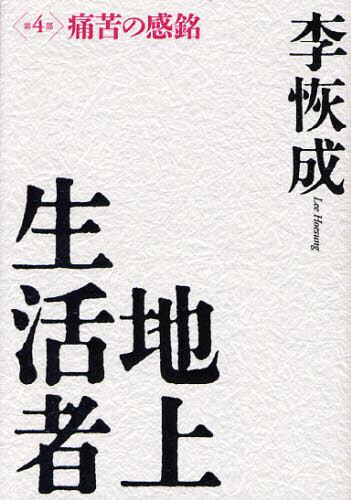 〈第4部〉痛苦の感銘
李恢成
Lee Hoesung
地上
生活者